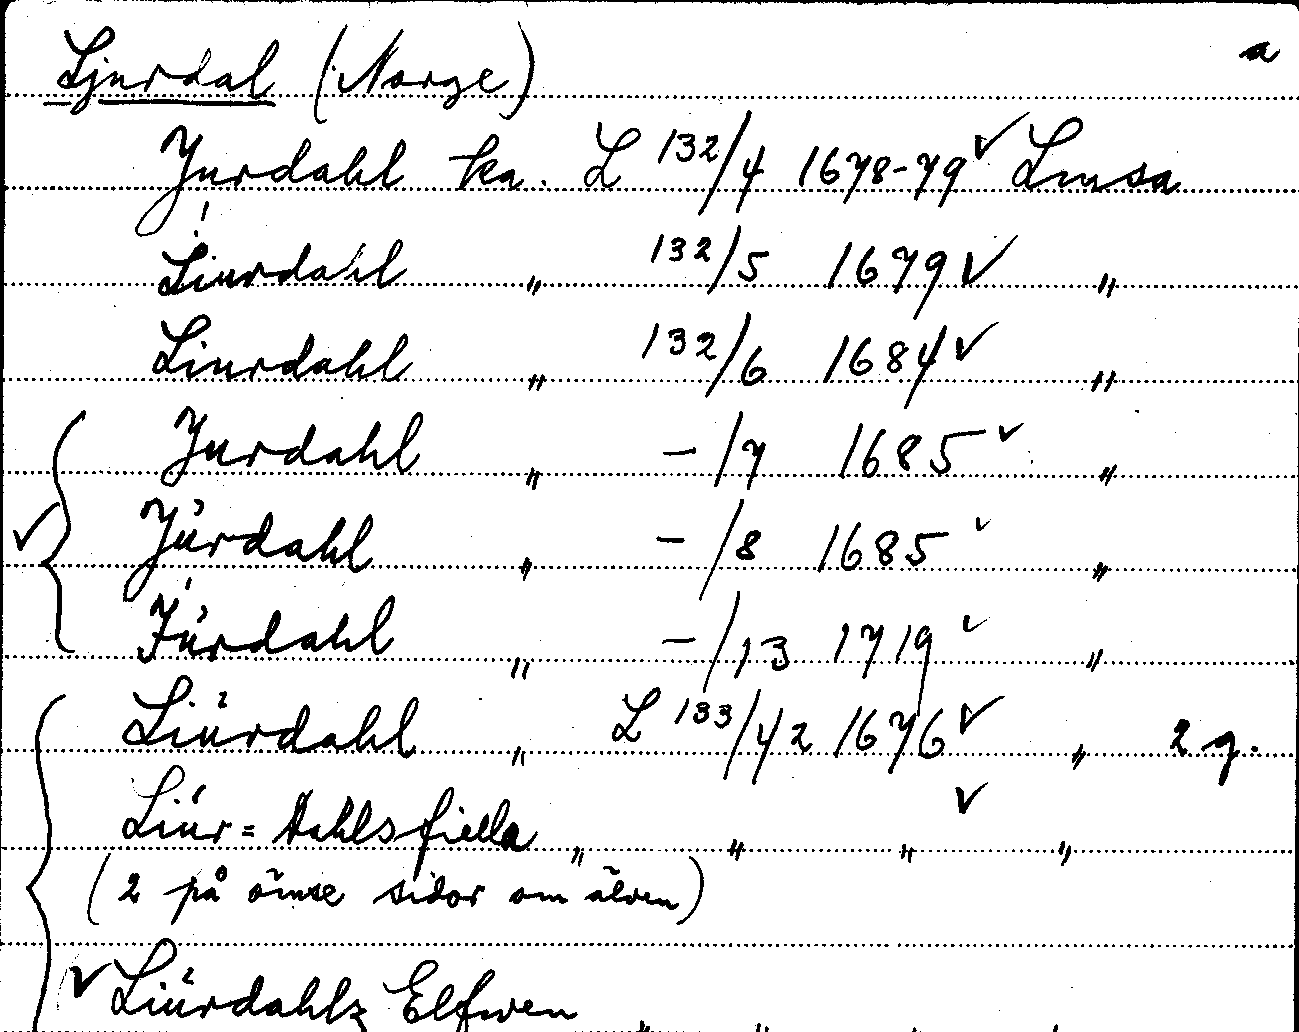 a
Ljurdal (Norge)
Jurdahl ka. L 132/4 1678-79 ✓ Limsa
Liurdahl " 132/5 1679 ✓ "
Liurdahl " 132/6 1684 ✓ "
Jurdahl " -/7 1685 ✓ "
✓ Jůrdahl " -/8 1685 ✓ "
Jůrdahl " -/13 1719 ✓ "
Liůrdahl " L 133/42 1676 ✓ " 2 g.
Liůr=dahlsfiella " " " ✓ "
(2 på ömse sidor om älven)
✓ Liůrdahlz Elfwen " " " "